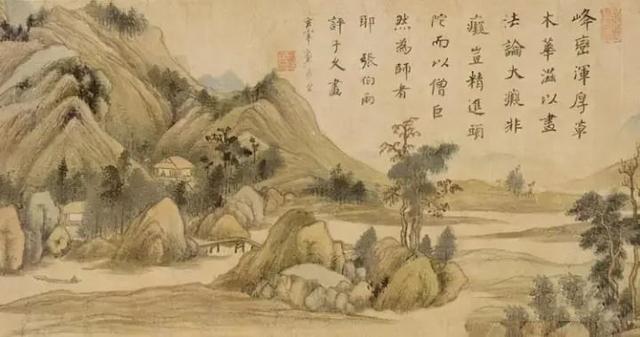 峰巒渾厚草
木華滋以畫
法論大癡非
癡豈精進頭
陀而以僧巨
然為師者
耶 張伯雨
評子久畫
玄宰